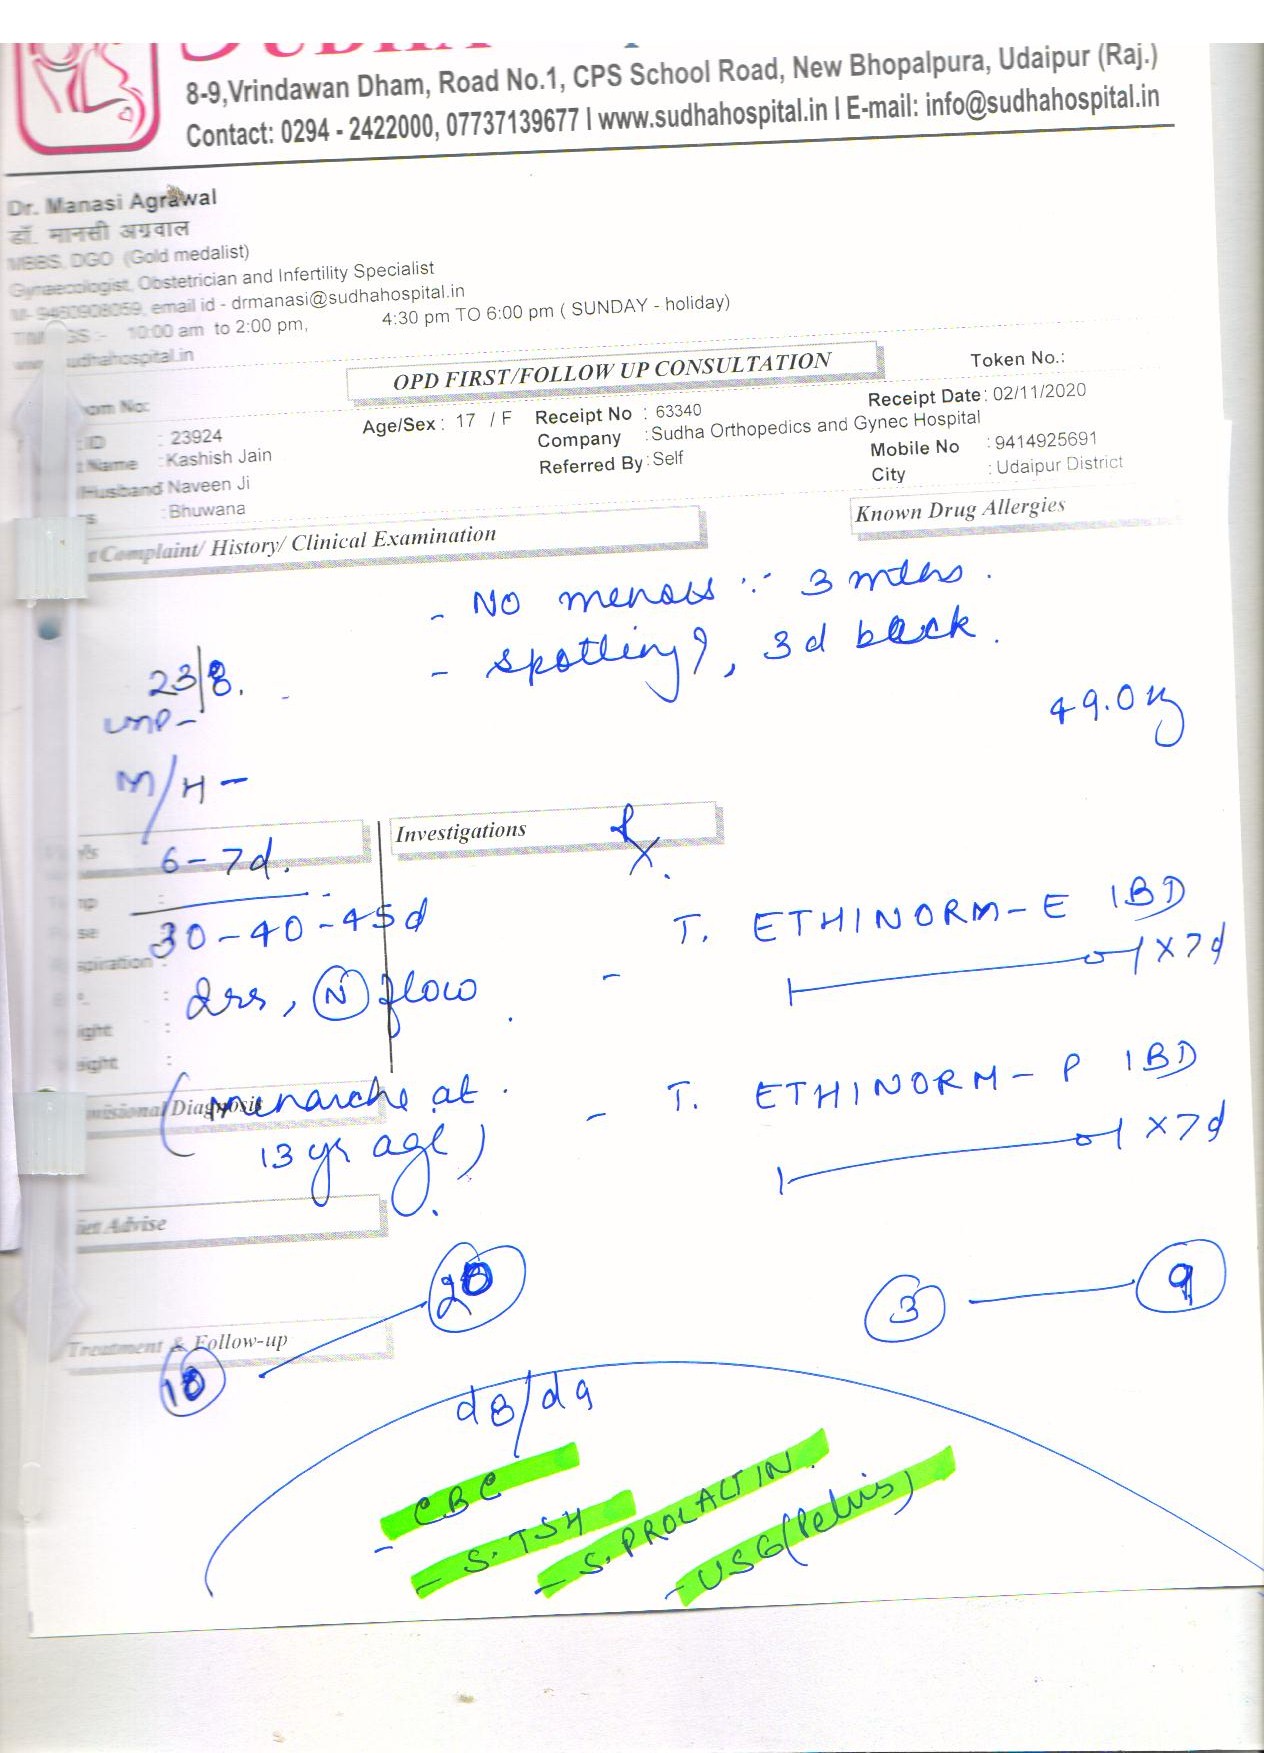 SUDHA
8-9,Vrindawan Dham, Road No.1, CPS School Road, New Bhopalpura, Udaipur (Raj.)
Contact: 0294 - 2422000, 07737139677 I www.sudhahospital.in I E-mail: info@sudhahospital.in
Dr. Manasi Agrawal
डॉ. मानसी अग्रवाल
MBBS, DGO (Gold medalist)
Gynaecologist, Obstetrician and Infertility Specialist
M- 9460908059, email id - drmanasi@sudhahospital.in
10:00 am to 2:00 pm, 4:30 pm TO 6:00 pm ( SUNDAY - holiday)
sudhahospital.in
OPD FIRST/FOLLOW UP CONSULTATION
Token No.:
om No:
Age/Sex : 17 / F Receipt No : 63340 Receipt Date : 02/11/2020
ID : 23924 Company : Sudha Orthopedics and Gynec Hospital
Name : Kashish Jain Referred By : Self Mobile No : 9414925691
Husband Naveen Ji City : Udaipur District
s : Bhuwana
Complaint/ History/ Clinical Examination
Known Drug Allergies
- NO menses ∵ 3 mths.
- spotting?, 3d back.
23/8.
LMP-
49.0 kg
M/H -
Investigations
Rx.
6-7d.
30-40-45d
T. ETHINORM-E 1BD
- x7d
2rs, (N) flow.
(menarche at
13 yr age).
- T. ETHINORM-P 1BD
x7d
isional Diagnosis
iet Advise
20
3 9
Treatment & Follow-up
18
d8/d9
- CBC
- S. TSH
- S. PROLACTIN.
- USG (Pelvis)